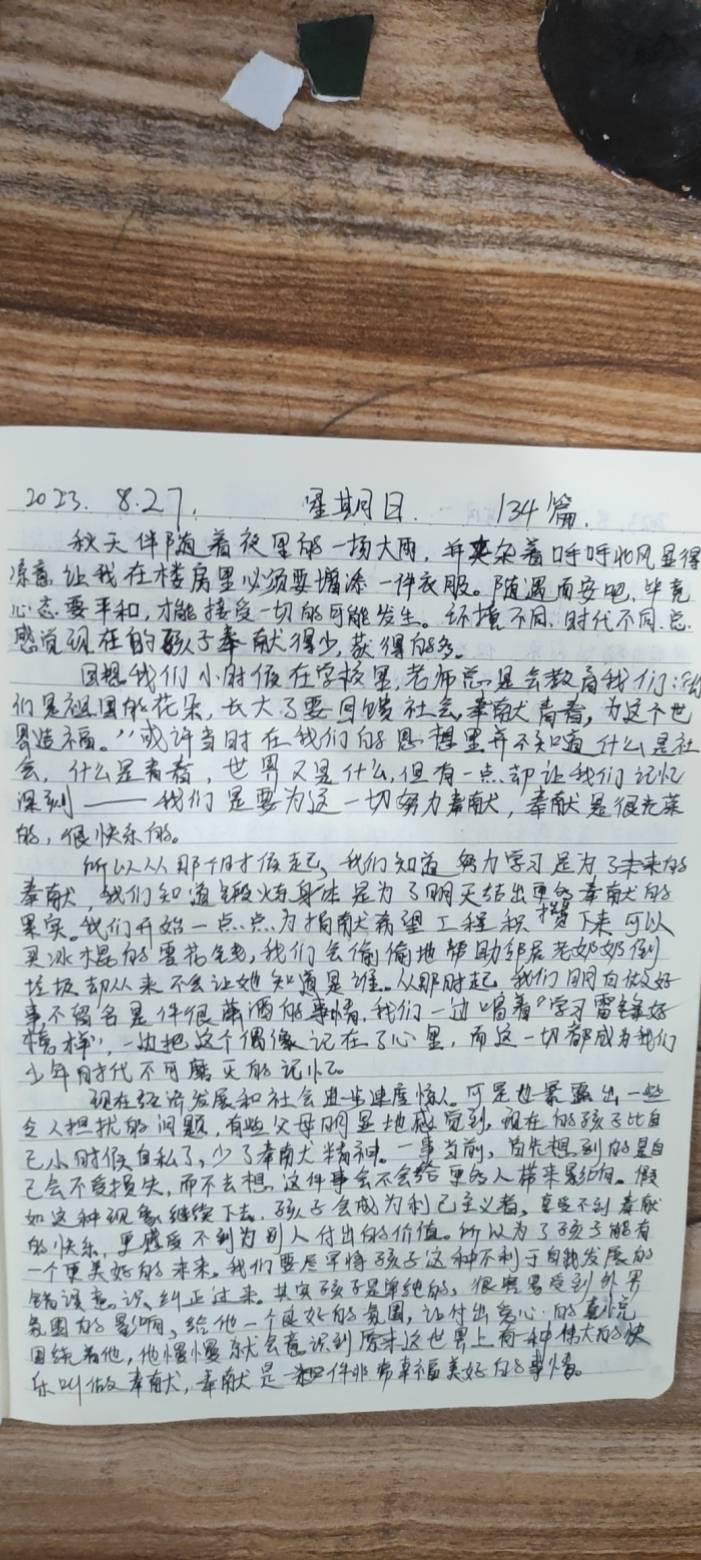 2023. 8.27. 星期日. 134篇.
秋天伴随着夜里的一场大雨, 并夹杂着呼呼北风显得
凉意, 让我在楼房里必须要增添一件衣服。随遇而安吧, 毕竟
心态要平和, 才能接受一切的可能发生。环境不同, 时代不同, 总
感觉现在的孩子奉献得少, 获得的多。
回想我们小时候在学校里, 老师总是会教育我们:“
们是祖国的花朵, 长大了要回馈社会, 奉献青春, 为这个世
界造福。”或许当时在我们的思想里并不知道什么是社
会, 什么是青春, 世界又是什么, 但有一点却让我们记忆
深刻——我们是要为这一切努力奉献, 奉献是很光荣
的, 很快乐的。
所以从那个时候起, 我们知道努力学习是为了未来的
奉献, 我们知道锻炼身体是为了明天结出更多奉献的
果实。我们开始一点点为捐献希望工程积攒下来可以
买冰棍的零花钱, 我们会偷偷地帮助邻居老奶奶倒
垃圾却从来不会让她知道是谁。从那时起, 我们明白做好
事不留名是件很潇洒的事情, 我们一边唱着“学习雷锋好
榜样”, 一边把这个偶像记在了心里, 而这一切都成为我们
少年时代不可磨灭的记忆。
现在经济发展和社会进步速度惊人。可是也暴露出一些
令人担扰的问题, 有些父母明显地感觉到, 现在的孩子比自
己小时候自私了, 少了奉献精神。一事当前, 首先想到的是自
己会不受损失, 而不去想, 这件事会不会给更多人带来影响。假
如这种现象继续下去, 孩子会成为利己主义者, 享受不到奉献
的快乐, 更感受不到为别人付出的价值。所以为了孩子能有
一个更美好的未来。我们要尽早将孩子这种不利于自我发展的
错误意识, 纠正过来。其实孩子是单纯的, 很容易受到外界
氛围的影响, 给他一个良好的氛围, 让付出爱心的喜悦
围绕着他, 他慢慢就会意识到原来这世界上有一种伟大的快
乐叫做奉献, 奉献是一件非常幸福美好的事情。